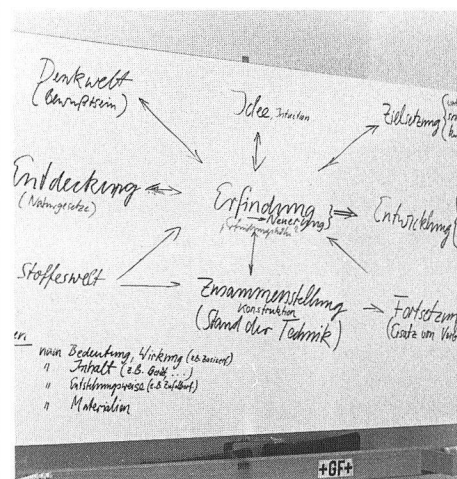 Denkwelt
(Bewußtsein)
Idee, Intuition
Zielsetzung {
Entdeckung
(Naturgesetze)
Erfindung
→ Neuerung }
Entwicklung {
Stoffeswelt
Zusammenstellung
Konstruktion
(Stand der Technik)
Fortsetzun
(Ersatz von
nach Bedeutung, Wirkung (z.B.
" Inhalt (z.B. Gott, ...)
" Entstehungsweise (z.B. Zufallserf.)
" Materialien
+GF+